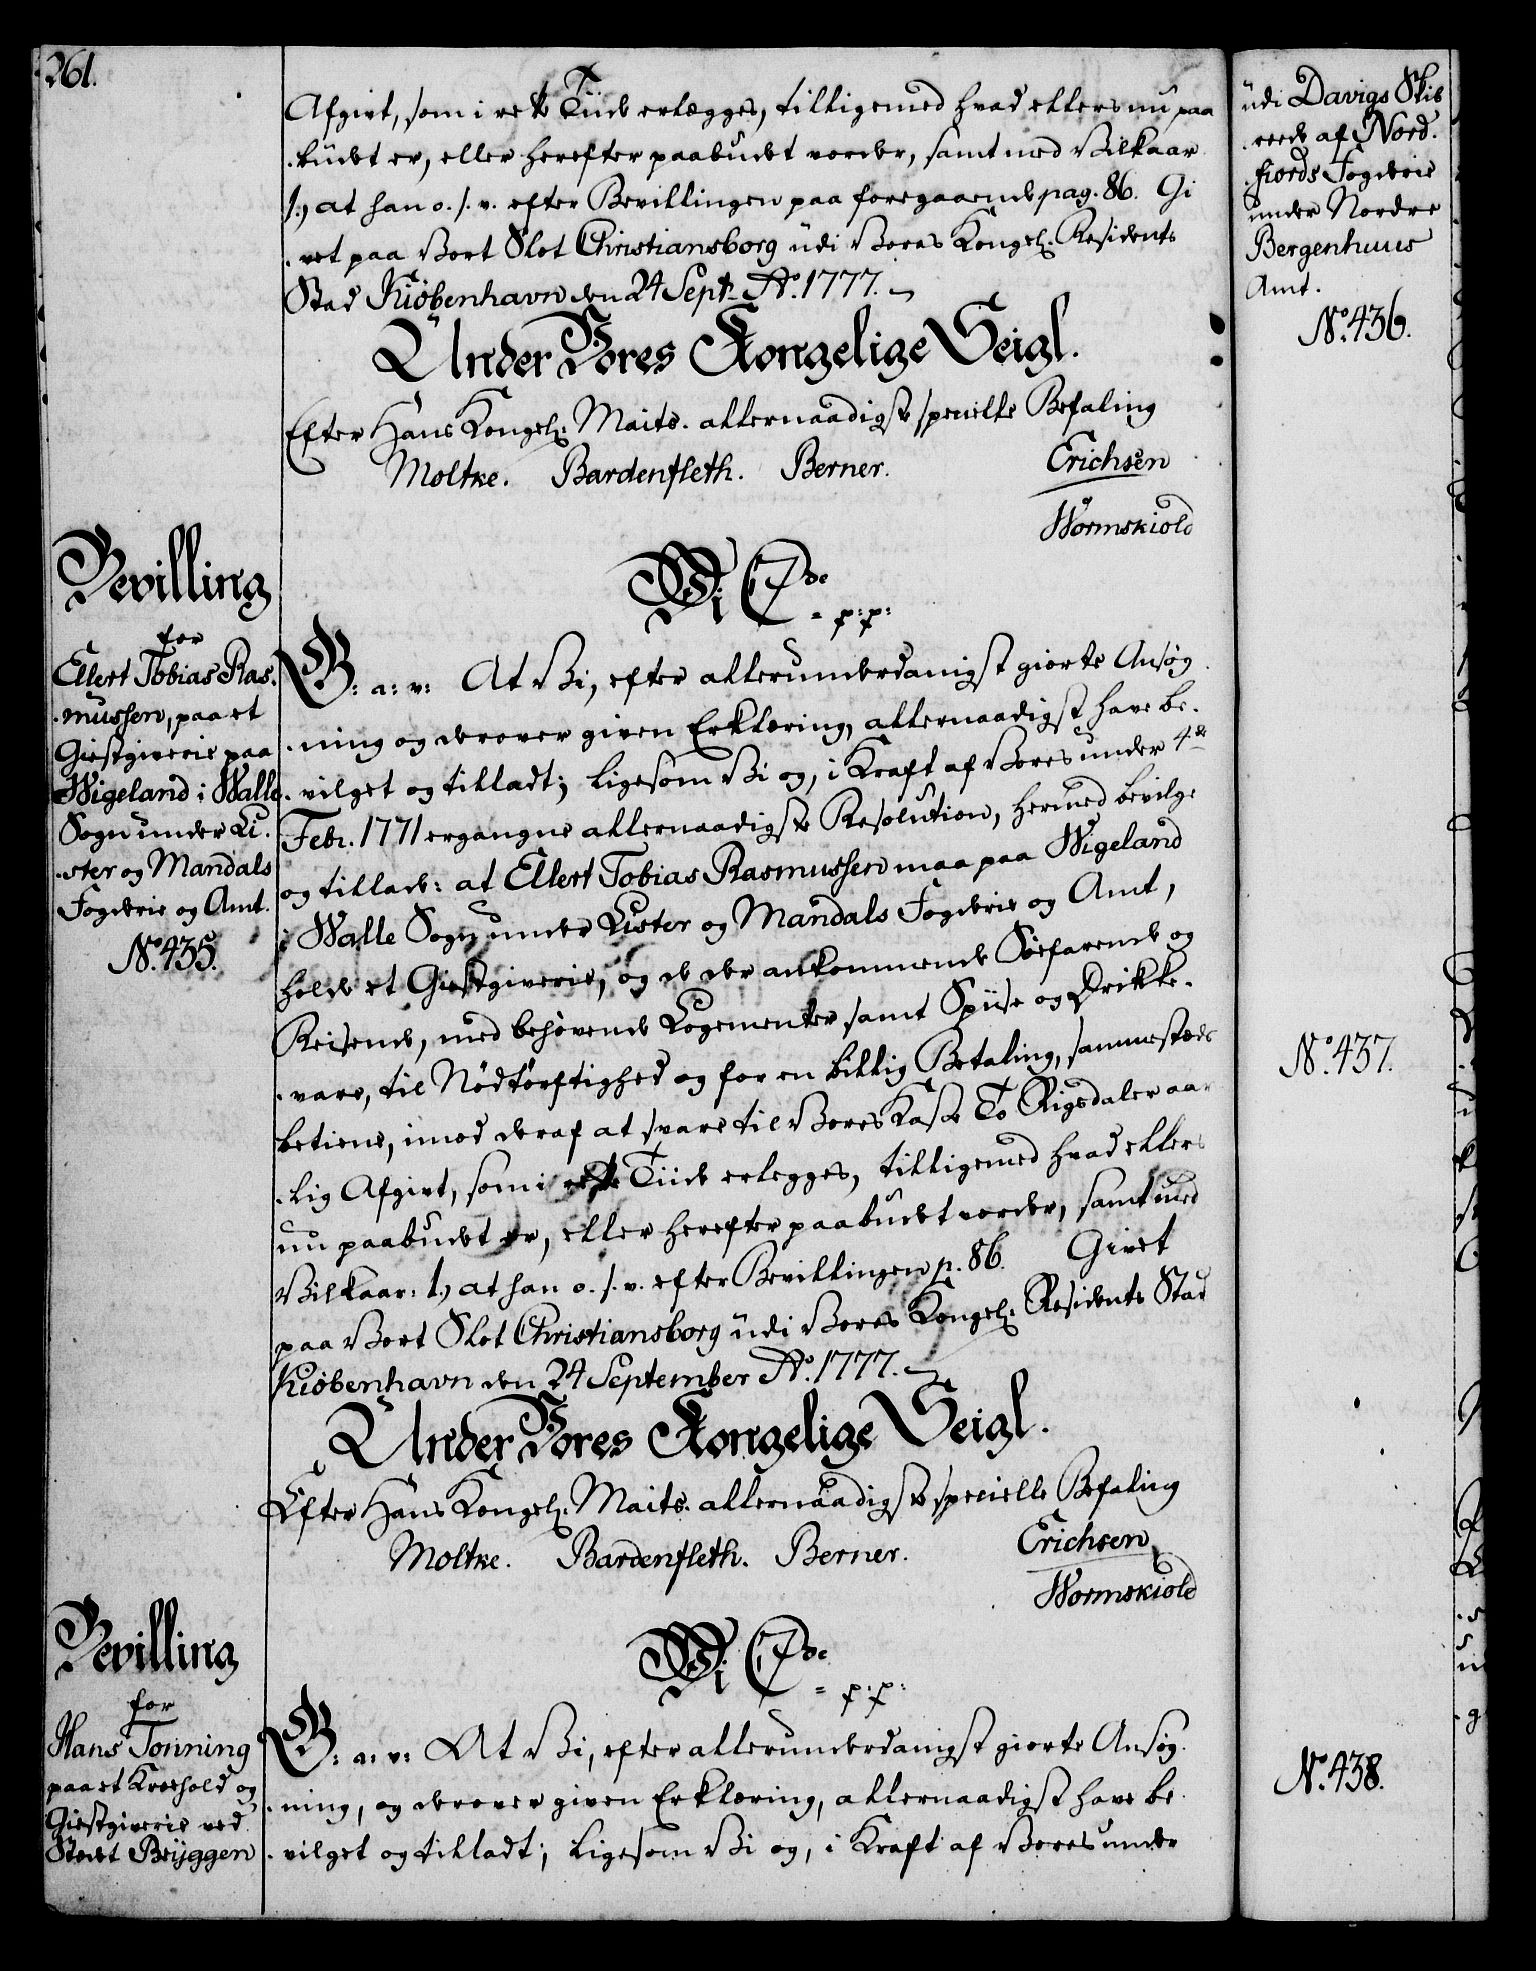 261.
Afgivt, som i rette Tiide erlægges, tilligemed hvad ellers nu paa
-budet er, eller herefter paabudet vorder, samt med Vilkaar
1.) at han o. s. v. efter Bevillingen paa foregaaende pag. 86. Gi
-vet paa Vort Slot Christiansborg udi Vores Kongel: Residents
Stad Kiøbenhavn den 24 Sept. Ao. 1777.
Under Vores Kongelige Seigl.
Efter Hans Kongel: Maits. allernaadigste specielle Befaling
Moltke. Bardenfleth. Berner. Erichsen
Wormskiold
Bevilling
for
Ellert Tobias Ras-
-mussen, paa et
Giestgiverie paa
Wigeland i Walle
Sogn under Li-
-ster og Mandals
Fogderie og Amt.
No. 435.
Wi C 7de
= p: p:
G: a: v: At Vi, efter allerunderdanigst giorte Ansøg-
-ning og derover given Erklæring, allernaadigst have be-
-vilget og tilladt; ligesom Vi og, i Kraft af Vores under 4de
Febr. 1771 ergangne allernaadigste Resolution, hermed bevilge
og tillade: at Ellert Tobias Rasmussen maa paa Wigeland
i Walle Sogn under Lister og Mandals Fogderie og Amt,
holde et Giestgiverie, og de der ankommende Søefarende og
Reisende, med behøvende Logementer samt Spiise og Drikke-
-vare, til Nødtørftighed og for en billig Betaling, sammestæds
betiene, imod deraf at svare til Vores Kasse To Rigsdaler aar-
-lig Afgivt, som i rette Tiide erlegges, tilligemed hvad ellers
nu paabudet er, eller herefter paabudet vorder, samt med
Vilkaar: 1.) at han o. s. v. efter Bevillingen p. 86. Givet
paa Vort Slot Christiansborg udi Vores Kongel: Residents Stad
Kiøbenhavn den 24 September Ao. 1777.
Under Vores Kongelige Seigl.
Efter Hans Kongel: Maits. allernaadigste specielle Befaling
Moltke. Bardenfleth. Berner. Erichsen
Wormskiold
Bevilling
for
Hans Tønning
paa et Kroehold og
Giestgiverie ved
Stedet Bryggen
Wi C 7de
= p: p:
G: a: v: At Vi, efter allerunderdanigst giorte Ansøg-
-ning, og derover given Erklæring, allernaadigst have be-
-vilget og tilladt; ligesom Vi og, i Kraft af Vores under
udi Davigs Skib-
-rede af Nord-
-fiords Fogderie
under Nordre
Bergenhuus
Amt.
No. 436.
No. 437.
No. 438.